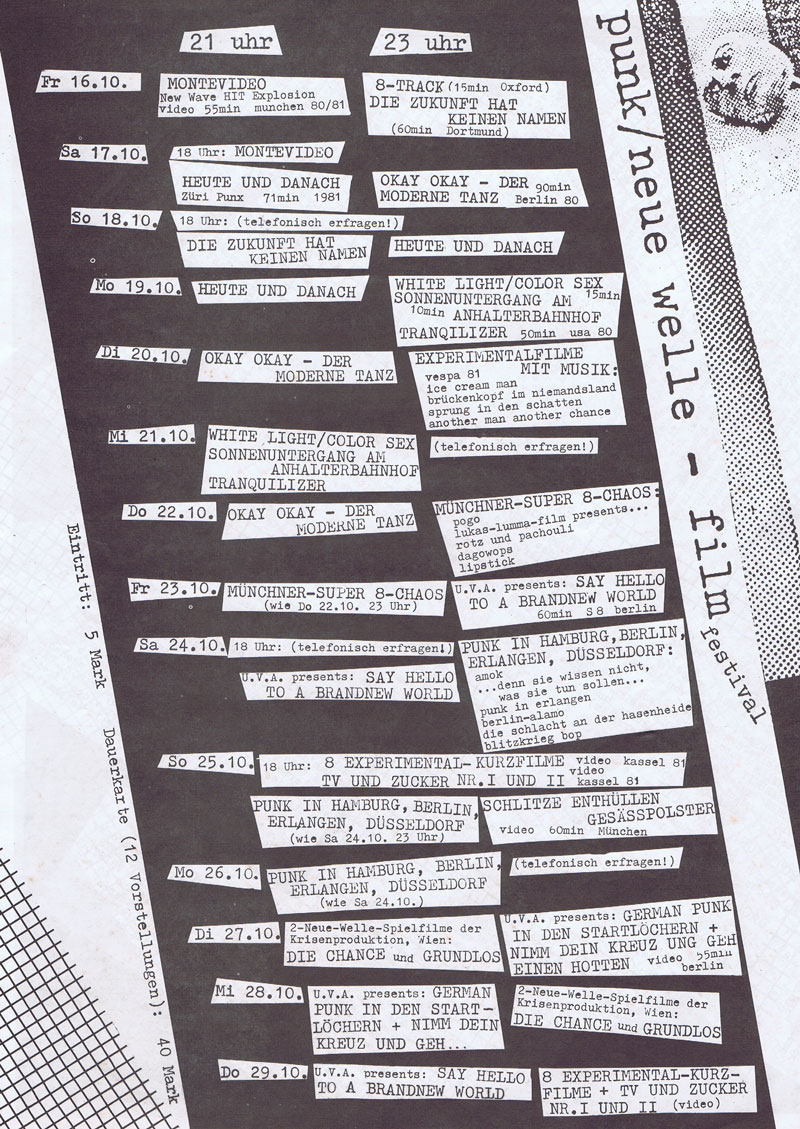 punk/neue welle - film festival
21 uhr
23 uhr
Fr 16.10.
MONTEVIDEO
New Wave HIT Explosion
video 55min munchen 80/81
8-TRACK (15min Oxford)
DIE ZUKUNFT HAT
KEINEN NAMEN
(60min Dortmund)
Sa 17.10.
18 Uhr: MONTEVIDEO
HEUTE UND DANACH
Züri Punx 71min 1981
OKAY OKAY - DER 90min
MODERNE TANZ Berlin 80
So 18.10.
18 Uhr: (telefonisch erfragen!)
DIE ZUKUNFT HAT
KEINEN NAMEN
HEUTE UND DANACH
Mo 19.10.
HEUTE UND DANACH
WHITE LIGHT/COLOR SEX
SONNENUNTERGANG AM 15min
10min ANHALTERBAHNHOF
TRANQILIZER 50min usa 80
Di 20.10.
OKAY OKAY - DER
MODERNE TANZ
EXPERIMENTALFILME
vespa 81 MIT MUSIK:
ice cream man
brückenkopf im niemandsland
sprung in den schatten
another man another chance
Mi 21.10.
WHITE LIGHT/COLOR SEX
SONNENUNTERGANG AM
ANHALTERBAHNHOF
TRANQUILIZER
(telefonisch erfragen!)
Do 22.10.
OKAY OKAY - DER
MODERNE TANZ
MÜNCHNER-SUPER 8-CHAOS:
pogo
lukas-lumma-film presents...
rotz und pachouli
dagowops
lipstick
Fr 23.10.
MÜNCHNER-SUPER 8-CHAOS
(wie Do 22.10. 23 Uhr)
U.V.A. presents: SAY HELLO
TO A BRANDNEW WORLD
60min S8 berlin
Sa 24.10.
18 Uhr: (telefonisch erfragen!)
U.V.A. presents: SAY HELLO
TO A BRANDNEW WORLD
PUNK IN HAMBURG, BERLIN,
ERLANGEN, DÜSSELDORF:
amok
...denn sie wissen nicht,
was sie tun sollen...
punk in erlangen
berlin-alamo
die schlacht an der hasenheide
blitzkrieg bop
So 25.10.
18 Uhr: 8 EXPERIMENTAL-KURZFILME video kassel 81
TV UND ZUCKER NR.I UND II video kassel 81
PUNK IN HAMBURG, BERLIN,
ERLANGEN, DÜSSELDORF
(wie Sa 24.10. 23 Uhr)
SCHLITZE ENTHÜLLEN
GESÄSSPOLSTER
video 60min München
Mo 26.10.
PUNK IN HAMBURG, BERLIN,
ERLANGEN, DÜSSELDORF
(wie Sa 24.10.)
(telefonisch erfragen!)
Di 27.10.
2-Neue-Welle-Spielfilme der
Krisenproduktion, Wien:
DIE CHANCE und GRUNDLOS
U.V.A. presents: GERMAN PUNK
IN DEN STARTLÖCHERN +
NIMM DEIN KREUZ UNG GEH
EINEN HOTTEN video 55min
berlin
Mi 28.10.
U.V.A. presents: GERMAN
PUNK IN DEN START-
LÖCHERN + NIMM DEIN
KREUZ UND GEH...
2-Neue-Welle-Spielfilme der
Krisenproduktion, Wien:
DIE CHANCE und GRUNDLOS
Do 29.10.
U.V.A. presents: SAY HELLO
TO A BRANDNEW WORLD
8 EXPERIMENTAL-KURZ-
FILME + TV UND ZUCKER
NR.I UND II (video)
Eintritt: 5 Mark Dauerkarte (12 Vorstellungen): 40 Mark